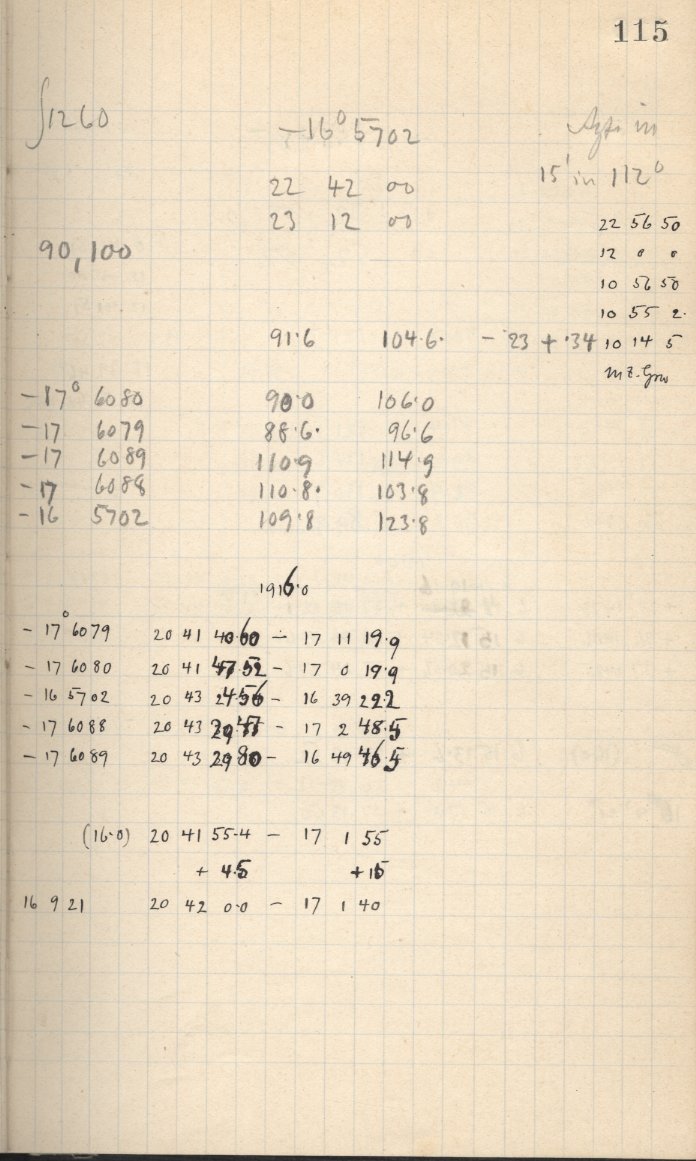 115
∫1260
-16° 5702
in
15' in 112°
22 42 00
23 12 00
22 56 50
90,100
12 0 0
10 56 50
10 55 2.
91.6 104.6. - 23 + .34
10 14 5
-17° 6080 90.0 106.0
-17 6079 88.6. 96.6
-17 6089 110.9 114.9
-17 6088 110.8. 103.8
-16 5702 109.8 123.8
1916.0
- 17° 6079 20 41 - 17 11 19.9
- 17 6080 20 41 47.52 - 17 0 19.9
- 16 5702 20 43 - 16 39 22.2
- 17 6088 20 43 - 17 2 48.5
- 17 6089 20 43 29.80 - 16 49 46.5
(16.0) 20 41 55.4 - 17 1 55
+ 4.5 + 15
16 9 21 20 42 0.0 - 17 1 40